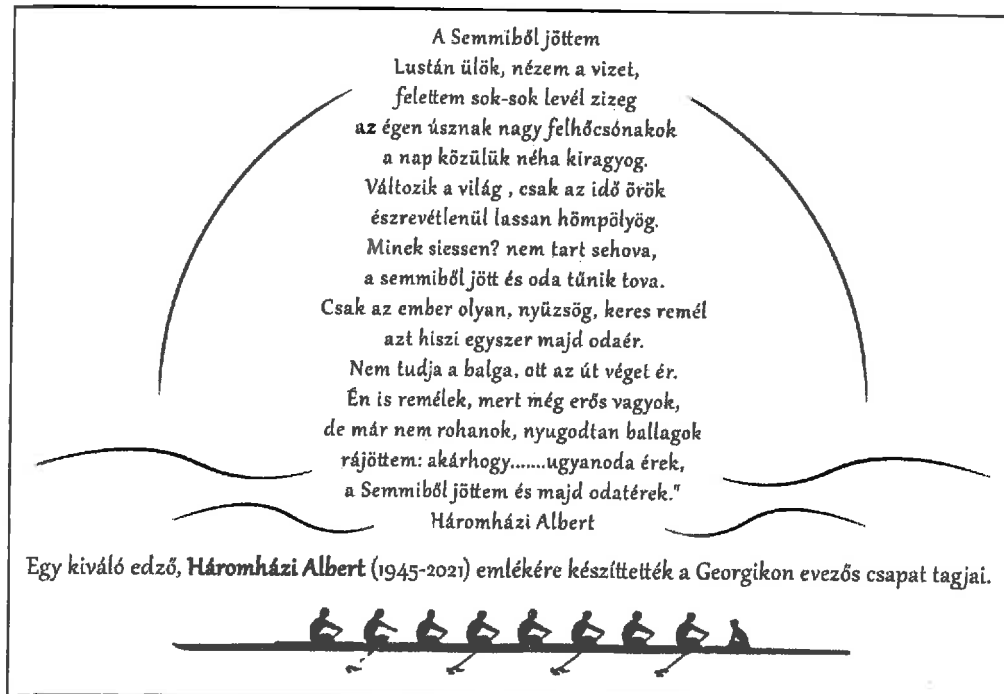 A Semmiből jöttem
Lustán ülök, nézem a vizet,
felettem sok-sok levél zizeg
az égen úsznak nagy felhőcsónakok
a nap közülük néha kiragyog.
Változik a világ , csak az idő örök
észrevétlenül lassan hömpölyög.
Minek siessen? nem tart sehova,
a semmiből jött és oda tűnik tova.
Csak az ember olyan, nyüzsög, keres remél
azt hiszi egyszer majd odaér.
Nem tudja a balga, ott az út véget ér.
Én is remélek, mert még erős vagyok,
de már nem rohanok, nyugodtan ballagok
rájöttem: akárhogy.......ugyanoda érek,
a Semmiből jöttem és majd odatérek."
Háromházi Albert
Egy kiváló edző, Háromházi Albert (1945-2021) emlékére készíttették a Georgikon evezős csapat tagjai.